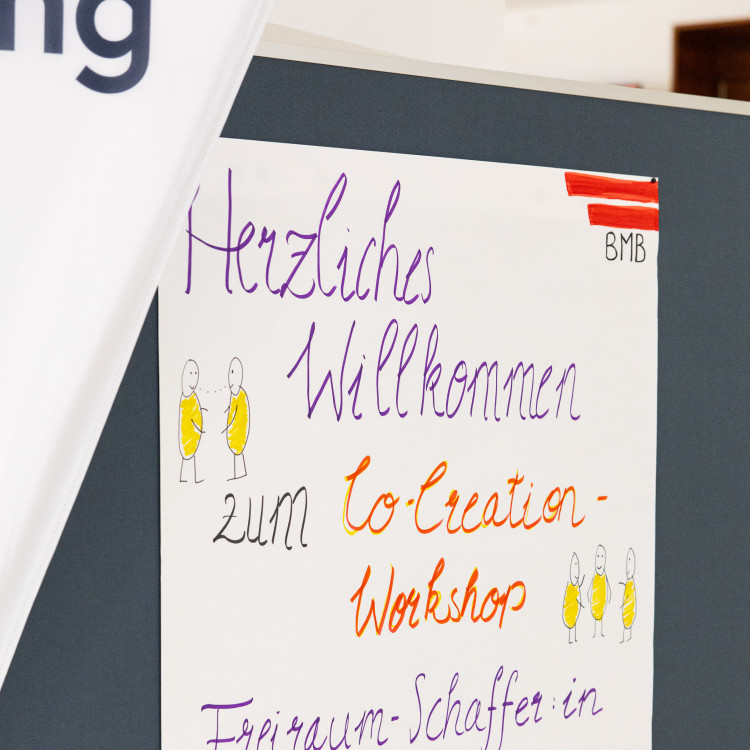 ng
BMB
Herzliches
Willkommen
zum Co-Creation-
Workshop
Freiraum-Schaffer:in